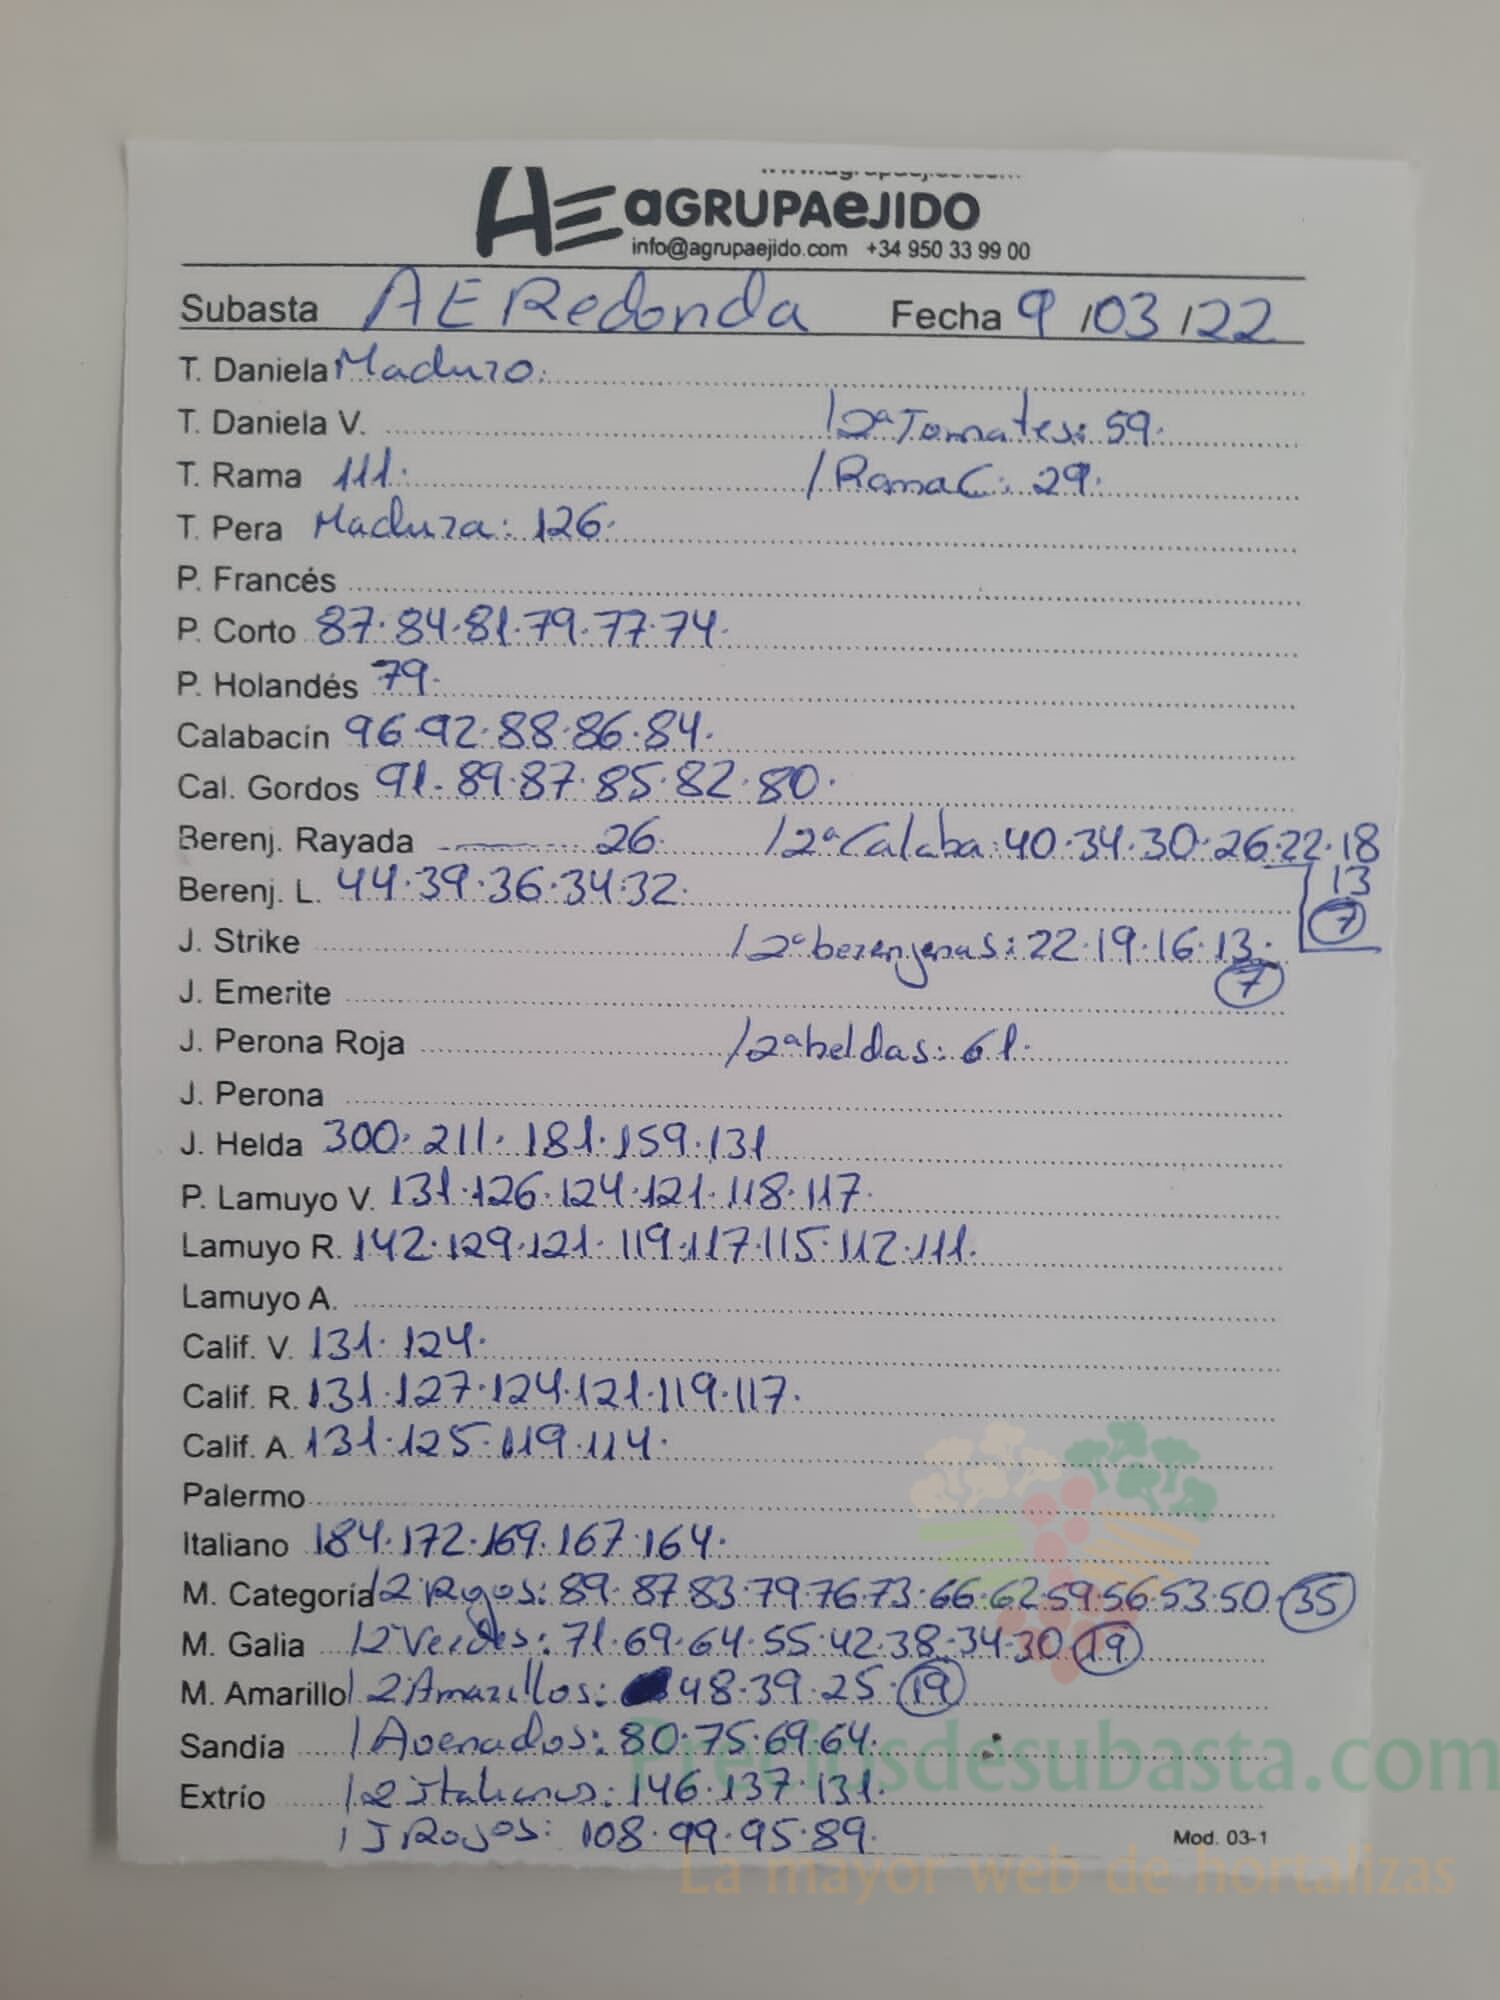 AE aGRUPAeJIDO
info@agrupaejido.com +34 950 33 99 00
Subasta AE Redonda Fecha 9/03/22
T. Daniela Maduro.
T. Daniela V. /2ª Tomates: 59.
T. Rama 111. /Rama C: 29.
T. Pera Madura: 126.
P. Francés
P. Corto 87.84.81.79.77.74.
P. Holandés 79.
Calabacín 96.92.88.86.84.
Cal. Gordos 91.89.87.85.82.80.
Berenj. Rayada 26. /2ª Calaba: 40.34.30.26.22.18
13
7
Berenj. L. 44.39.36.34.32.
J. Strike /2ª berenjenas: 22.19.16.13.
7
J. Emerite
J. Perona Roja /2ª heldas: 61.
J. Perona
J. Helda 300.211.181.159.131
P. Lamuyo V. 131.126.124.121.118.117.
Lamuyo R. 142.129.121.119.117.115.112.111.
Lamuyo A.
Calif. V. 131.124.
Calif. R. 131.127.124.121.119.117.
Calif. A. 131.125.119.114.
Palermo
Italiano 184.172.169.167.164.
M. Categoría /2 Rojos: 89.87.83.79.76.73.66.62.59.56.53.50.35
M. Galia /2 Verdes: 71.69.64.55.42.38.34.30 19
M. Amarillo /2 Amarillos: 48.39.25.19
Sandía /Asenados: 80.75.69.64.
Extrío /2 italianos: 146.137.131.
/J Rojos: 108.99.95.89.
Mod. 03-1
Preciosdesubasta.com
La mayor web de hortalizas